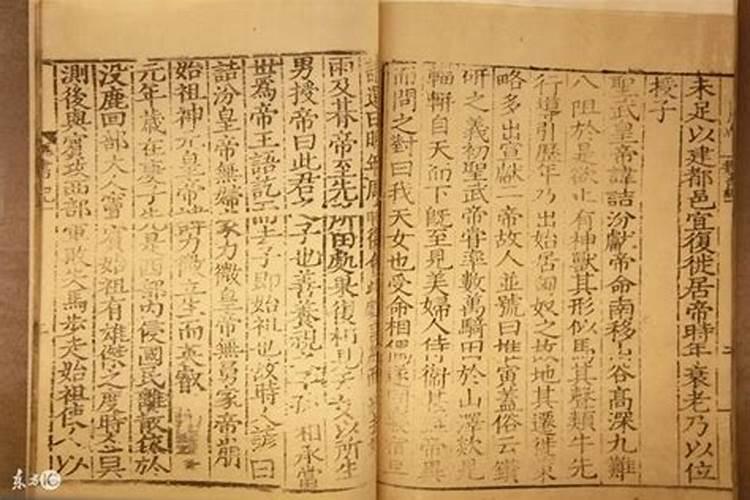 未足以建都邑宜復徙居帝時年衰老乃以位
授子
聖武皇帝諱詰汾獻帝命南移山谷高深九難
八阻於是欲止有神獸其形似馬其聲類牛先
行導引歷年乃出始居匈奴之故地其遷徙策
略多出宣獻二帝故人並號曰推寅蓋俗云鑽
研之義初聖武帝嘗率數萬騎田於山澤欻見
輜軿自天而下既至見美婦人侍衛甚盛帝異
而問之對曰我天女也受命相偶遂同
請還曰明年周時復
雨及朞帝至先所田處果復相見天女以所生
男授帝曰此君之子也善養視之子孫相承當
世爲帝王語訖而去子即始祖也故時人諺曰
詰汾皇帝無婦家力微皇帝無舅家帝崩
始祖神元皇帝諱力微立生而英叡
元年歲在庚子先是西部內侵國民離散依於
没鹿回部大人竇賓始祖有雄傑之度時人莫
測後與賓攻西部軍敗失馬步走始祖使人以
东方IC